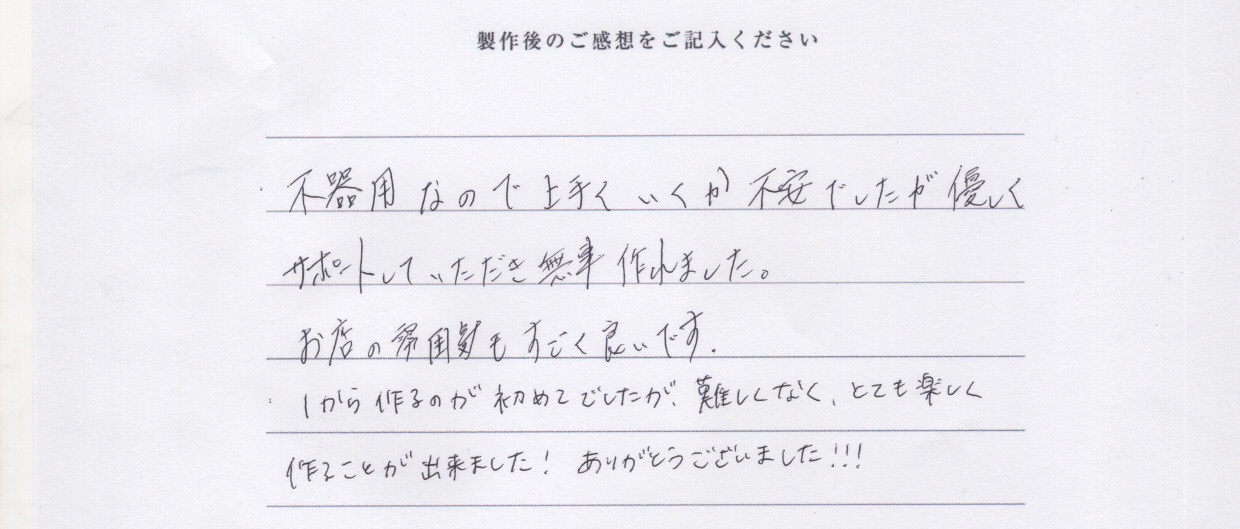 製作後のご感想をご記入ください
・不器用なので上手くいくか不安でしたが優しく
サポートしていただき無事作れました。
お店の雰囲気もすごく良いです.
・1から作るのが初めてでしたが、難しくなく、とても楽しく
作ることが出来ました! ありがとうございました!!!